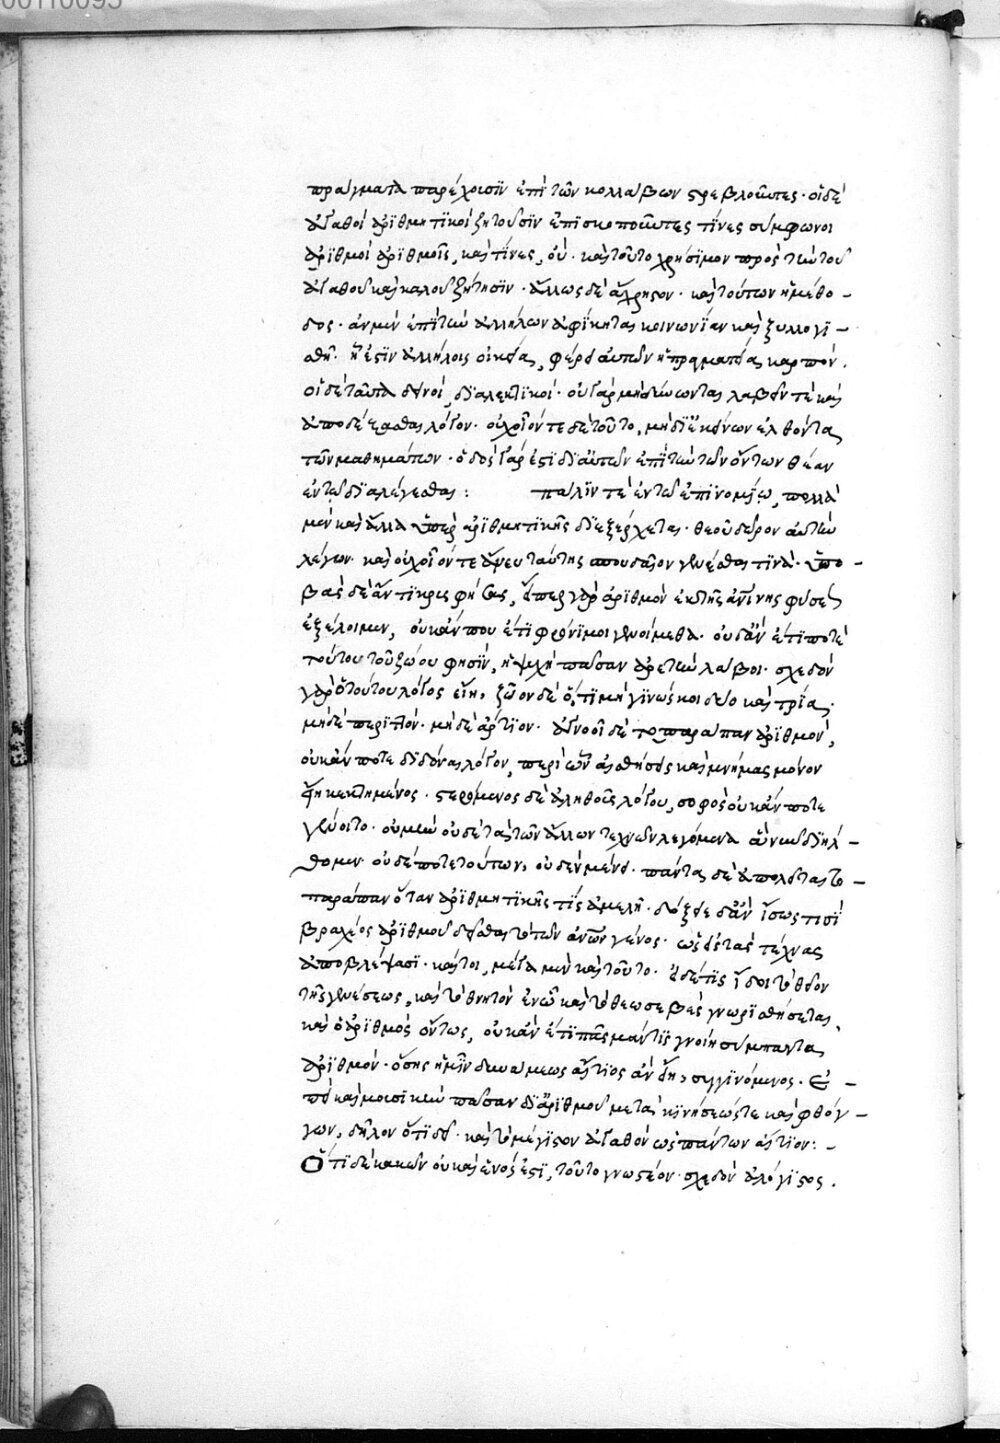 00110095
πράγματα παρέχουσιν ἐπὶ τῶν κολλάβων στρεβλοῦντες· οἱ δὲ
ἀγαθοὶ ἀριθμητικοὶ ζητοῦσιν ἐπισκοποῦντες τίνες σύμφωνοι
ἀριθμοὶ ἀριθμοῖς, καὶ τίνες, οὔ· καὶ τοῦτο χρήσιμον πρὸς τὴν τοῦ
ἀγαθοῦ καὶ καλοῦ ζήτησιν· ἄλλως δὲ ἄχρηστον· καὶ τούτων ἡ μέθο -
δος· ἂν μὲν ἐπὶ τὴν ἀλλήλων ἀφίκηται κοινωνίαν καὶ ξυλλογι -
σθῇ· ᾗ ἐστὶν ἀλλήλοις οἰκεῖα, φέρει αὐτῶν ἡ πραγματεία καρπόν.
οἱ δὲ ταῦτα δεινοὶ, διαλεκτικοί· οὐ γὰρ μὴ δύωνται λαβεῖν τε καὶ
ἀποδέξασθαι λόγον· οὐχ οἷόν τε δὲ τοῦτο, μὴ δι' ἐκείνων ἐλθόντα
τῶν μαθημάτων· ὁδὸς γάρ ἐστι δι' αὐτῶν ἐπὶ τὴν τῶν ὄντων θέαν
ἐν τῷ διαλέγεσθαι: πάλιν τὲ ἐν τῷ ἐπινομίῳ, πολλὰ
μὲν καὶ ἄλλα ὑπὲρ ἀριθμητικῆς διεξέρχεται· θεοῦ δῶρον αὐτὴν
λέγων· καὶ οὐχ οἷόν τε ἄνευ ταύτης σπουδαῖον γενέσθαι τινά· ὑπο -
βὰς δὲ ἄντικρις φησὶν, εἴπερ γὰρ ἀριθμὸν ἐκ τῆς ἀνθρωπίνης φύσεως
ἐξέλοιμεν, οὐκ ἄν που ἔτι φρόνιμοι γενοίμεθα· οὐ δ' ἂν ἔτι ποτὲ
τούτου τοῦ ζώου φησὶν, ἡ ψυχὴ πᾶσαν ἀρετὴν λάβοι· σχεδὸν
γὰρ ὅτου τοῦ λόγος εἴη, ζῶον δὲ ὅ,τι μὴ γινώσκοι δύο καὶ τρία,
μηδὲ περιττόν· μηδὲ ἄρτιον· ἀγνοοῖ δὲ τοπαράπαν ἀριθμὸν,
οὐκ ἄν ποτε διδόναι λόγον, περὶ ὧν αἰσθήσεις καὶ μνήμας μόνον
εἴη κεκτημένος· στερόμενος δὲ ἀληθοῦς λόγου, σοφὸς οὐκ ἄν ποτε
γένοιτο· οὐ μὴν οὐδὲ τὰ τῶν ἄλλων τεχνῶν λεγόμενα ἃ νῦν διήλ -
θομεν οὐδέποτε τούτων, οὐδὲν μένει· πάντα δὲ ἀπολεῖται τὸ -
παράπαν ὅταν ἀριθμητικῆς τὶς ἀμελῇ· δόξειε δ' ἂν ἴσως τισὶ
βραχέος ἀριθμοῦ δεῖσθαι τὸ τῶν ἀνθρώπων γένος· ὡς εἰς τὰς τέχνας
ἀποβλέψασι· καίτοι, μέγα μὲν καὶ τοῦτο· εἰ δέ τις ἴδοι τὸ θεῖον
τῆς γενέσεως, καὶ τὸ θνητὸν ἐν ᾧ καὶ τὸ θεωσεβὲς γνωρισθήσεται,
καὶ ὁ ἀριθμὸς ὄντως, οὐκ ἂν ἔτι πᾶς μάντις γνοίη σύμπαντα
ἀριθμὸν· ὅσης ἡμῖν δυνάμεως αἴτιος ἂν εἴη, συγγινόμενος· ἐ -
πεὶ καὶ μουσικὴν πᾶσαν δι' ἀριθμοῦ μετὰ κινήσεώς τε καὶ φθόγ -
γων, δῆλον ὅτι δεῖ· καὶ τὸ μέγιστον ἀγαθὸν ὡς πάντων αἴτιον: -
Ὅτι δὲ κακῶν οὐκ αἴτιός ἐστι, τοῦτο γνωστέον· σχεδὸν ἀλόγιστος.